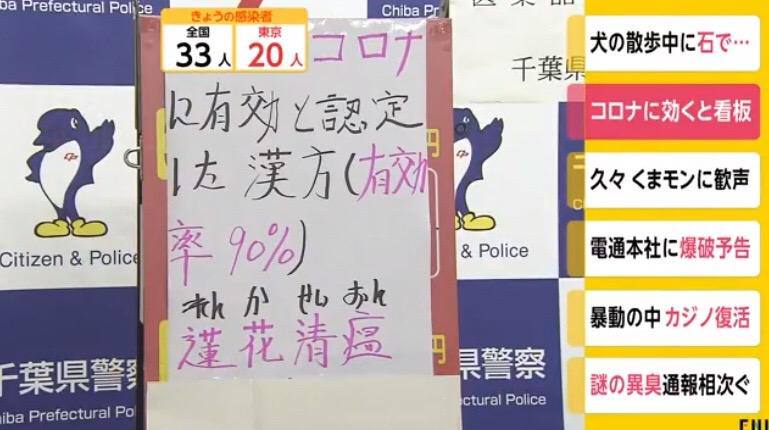 きょうの感染者
全国 33人
東京 20人
コロナ
に有効と認定
した漢方(有効
率90%)
れん か せい おん
蓮花清瘟
Chiba Prefectural Po
千葉県
Citizen & Police
& Police
千葉県警察
Chiba Prefectural Pol
県警察
Prefectural Police
円
円
犬の散歩中に石で…
コロナに効くと看板
久々 くまモンに歓声
電通本社に爆破予告
暴動の中 カジノ復活
謎の異臭通報相次ぐ